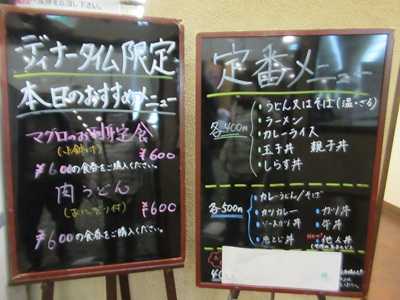 ディナータイム限定
本日のおすすめメニュー
マグロのお刺身定食
(小鉢付)
¥600
¥600の食券をご購入ください。
肉うどん
(おにぎり付)
¥600
¥600の食券をご購入ください。
定番メニュー
各400円
・うどん又はそば(温・ざる)
・ラーメン
・カレーライス
・玉子丼 親子丼
・しらす丼
各500円
・カレーうどん/そば
・カツカレー
・カツ丼
・牛丼
・他人丼